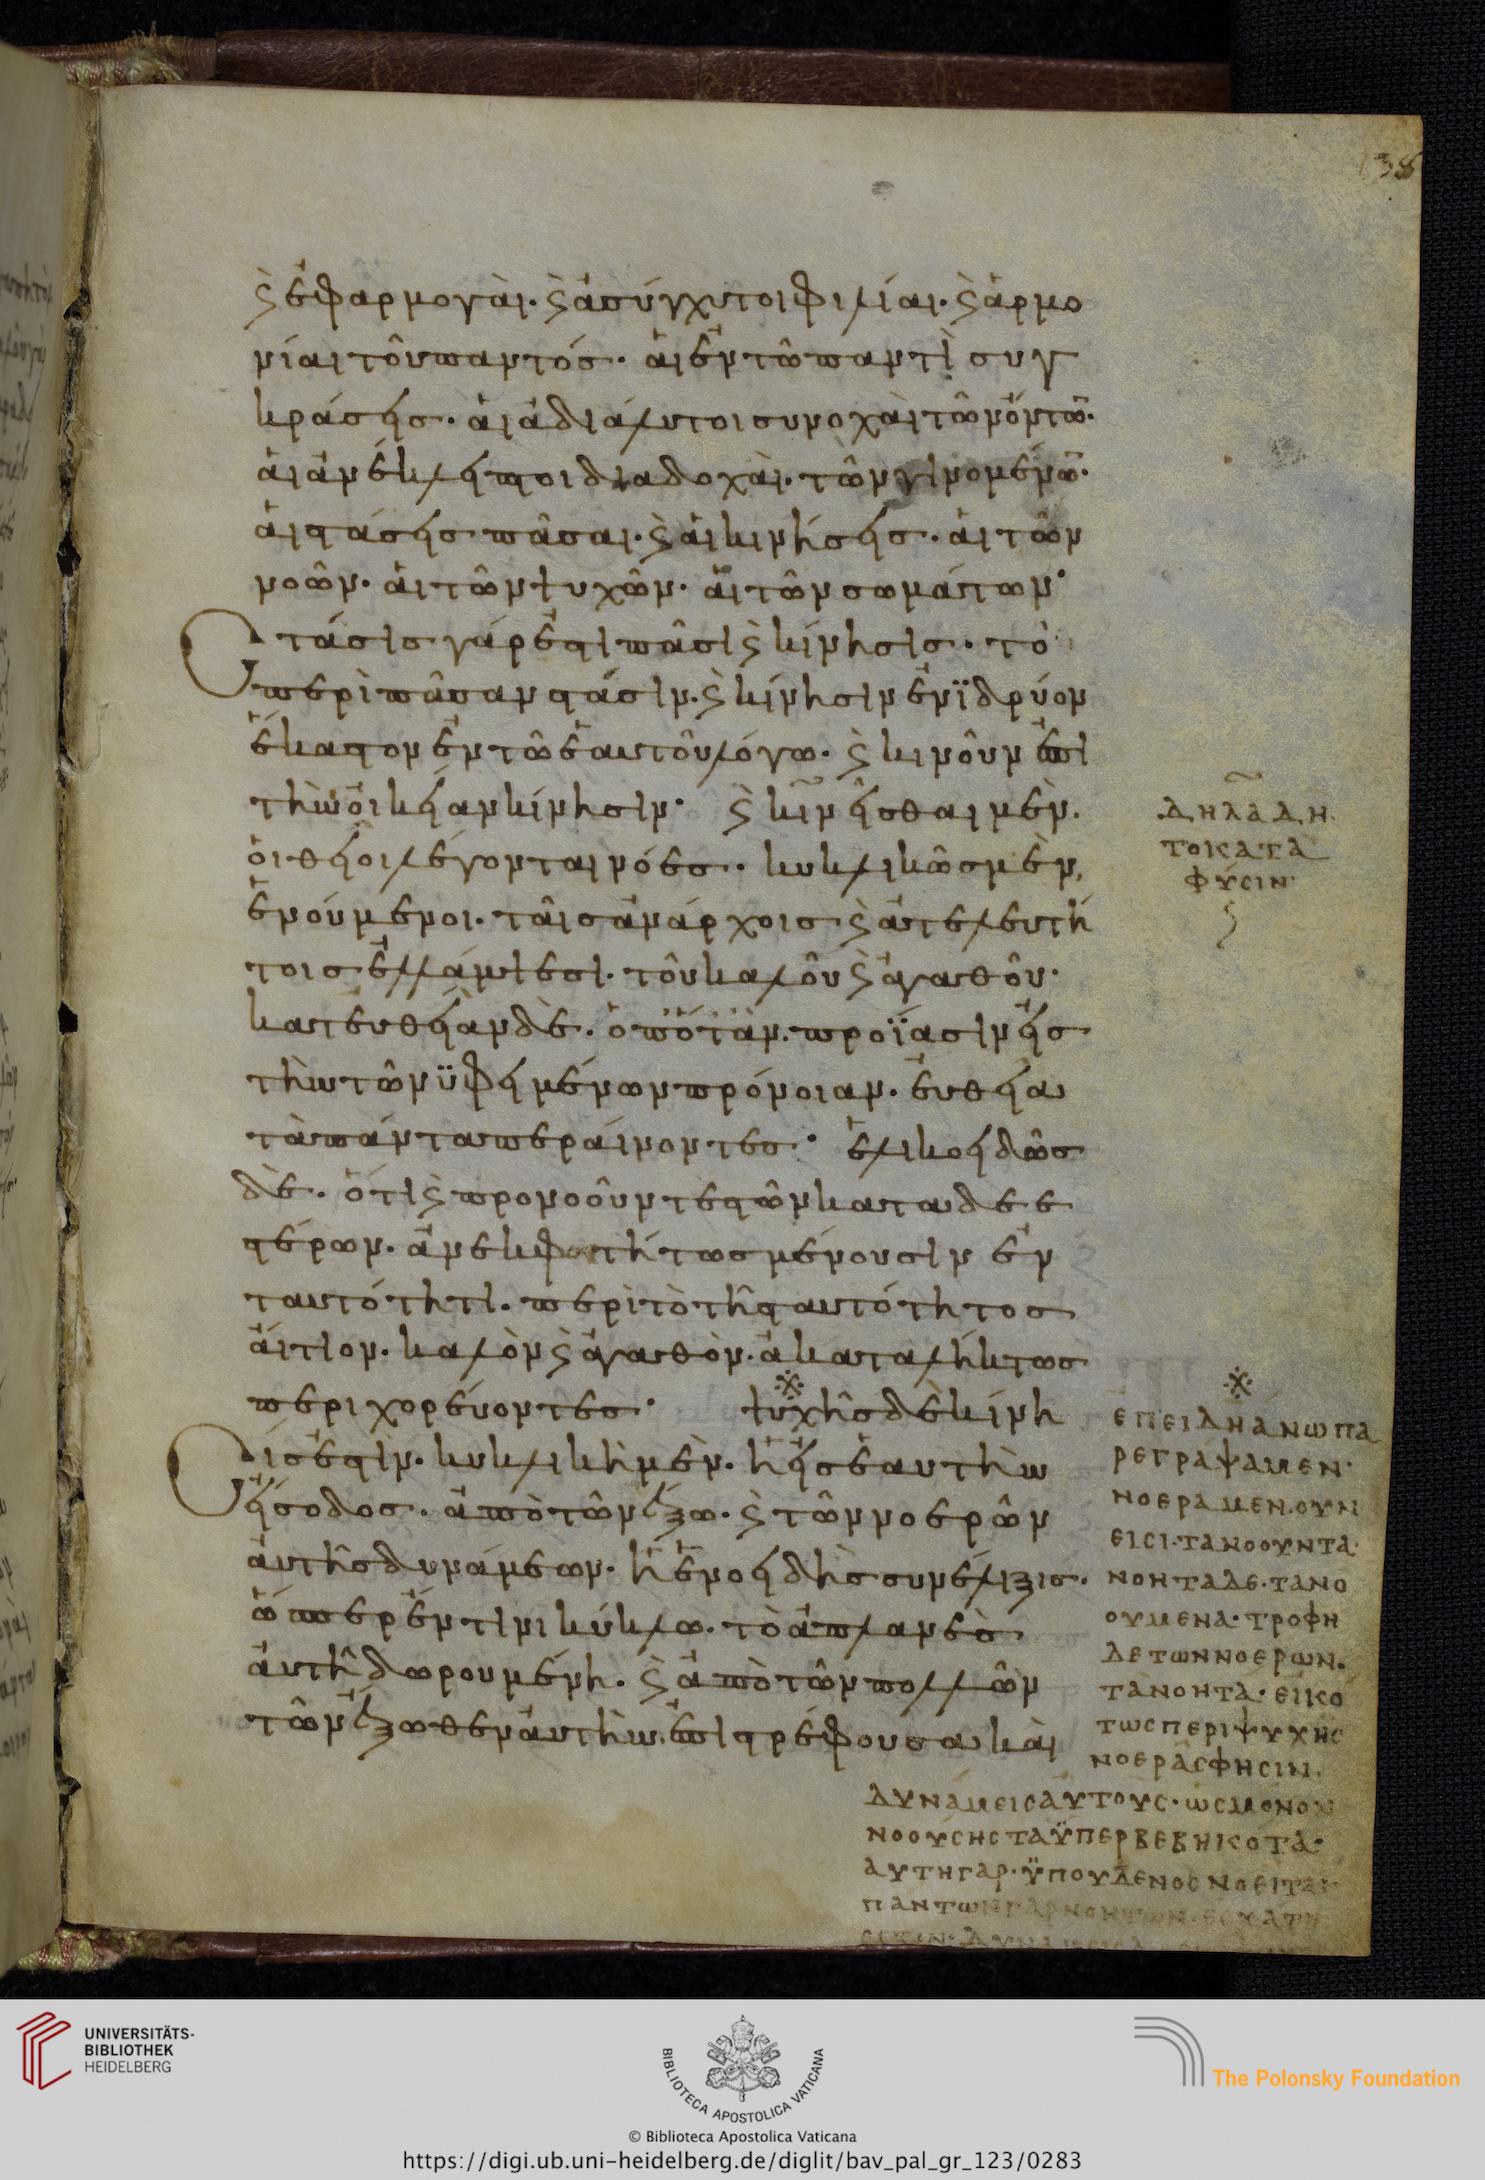 138
ϛ ἐφαρμογαὶ. ϛ ἀσύγχυτοι φιλίαι. ϛ ἁρμο
νίαι τοῦ παντός. αἱ ἐν τῶ παντὶ συγ
κράσεις. αἱ ἀδιάλυτοι συνοχαὶ τῶν ὄντω̅.
αἱ ἀνέκλειπτοι διαδοχαὶ. τῶν γινομένω̅.
αἱ στάσεις πᾶσαι. ϛ αἱ κινήσεις. αἱ τῶν
νοῶν. αἱ τῶν ψυχῶν. αἱ τῶν σωμάτων·
Στάσις γάρ ἐστι πᾶσι ϛ κίνησις. τὸ
περὶ πᾶσαν στάσιν. ϛ κίνησιν ἐνϊδρύον
ἕκαστον ἐν τῶ ἑαυτοῦ λόγω. ϛ κινοῦν ἐπὶ
τὴν οἰκείαν κίνησιν· ϛ κινεῖσθαι μὲν.
οἱ θεῖοι λέγονται νόες. κυκλικῶς μὲν,
ἑνούμενοι. ταῖς ἀνάρχοις ϛ ἀτελευτή
τοις ἐλλάμψεσι. τοῦ καλοῦ ϛ ἀγαθοῦ.
κατευθεῖαν δὲ. ὁπόταν. προϊάσιν εἰς
τὴν τῶν ὑφειμένων πρόνοιαν. εὐθεία
τὰ πάντα περαίνοντες· ἑλικοειδῶς
δὲ. ὅτι ϛ προνοοῦντες τῶν καταδεε
στέρων. ἀνεκφοιτήτως μένουσιν ἐν
ταυτότητι. περὶ τὸ τῆς ταυτότητος
αἴτιον. καλὸν ϛ ἀγαθὸν. ἀκαταλήκτως
περιχορεύοντες· ψυχῆς δὲ κίνη
σίς ἐστὶν. κυκλικὴ μὲν. ἡ εἰς ἑαυτὴν
εἴσοδος. ἀπὸ τῶν ἔξω. ϛ τῶν νοερῶν
αὐτῆς δυνάμεων. ἡ ἑνοειδὴς συνέλιξις.
ὥσπερ ἔν τινι κύκλω. τὸ ἀπλανὲς
αὐτῆ δωρουμένη. ϛ ἀπὸ τῶν πολλῶν
τῶν ἔξωθεν αὐτὴν. ἐπιστρέφουσα καὶ
ΔΗΛΑΔΗ
ΤΟ ΚΑΤΑ
ΦΥCΙΝ·
ΕΠΕΙΔΗ ΑΝΩ ΠΑ
ΡΕΓΡΑΨΑΜΕΝ·
ΝΟΕΡΑ ΜΕΝ ΟΥΝ
ΕΙCΙ· ΤΑ ΝΟΟΥΝΤΑ·
ΝΟΗΤΑ ΔΕ· ΤΑ ΝΟ
ΟΥΜΕΝΑ· ΤΡΟΦΗ
ΔΕ ΤΩΝ ΝΟΕΡΩΝ.
ΤΑ ΝΟΗΤΑ· ΕΙΚΟ
ΤΩC ΠΕΡΙ ΨΥΧΗC
ΝΟΕΡΑC ΦΗCΙΝ.
ΔΥΝΑΜΕΙC ΑΥΤΟΥC· ΩC ΜΟΝΟΝ
ΝΟΟΥCΗC ΤΑ ΫΠΕΡΒΕΒΗΚΟΤΑ·
ΑΥΤΗ ΓΑΡ· ΫΠ ΟΥΔΕΝΟC ΝΟΕΙΤΑΙ
ΠΑΝΤΩΝ ΓΑΡ ΝΟΗΤΩΝ· ΕCΧΑΤΗ
UNIVERSITÄTS-
BIBLIOTHEK
HEIDELBERG
BIBLIOTECA APOSTOLICA VATICANA
The Polonsky Foundation
© Biblioteca Apostolica Vaticana
https://digi.ub.uni-heidelberg.de/diglit/bav_pal_gr_123/0283